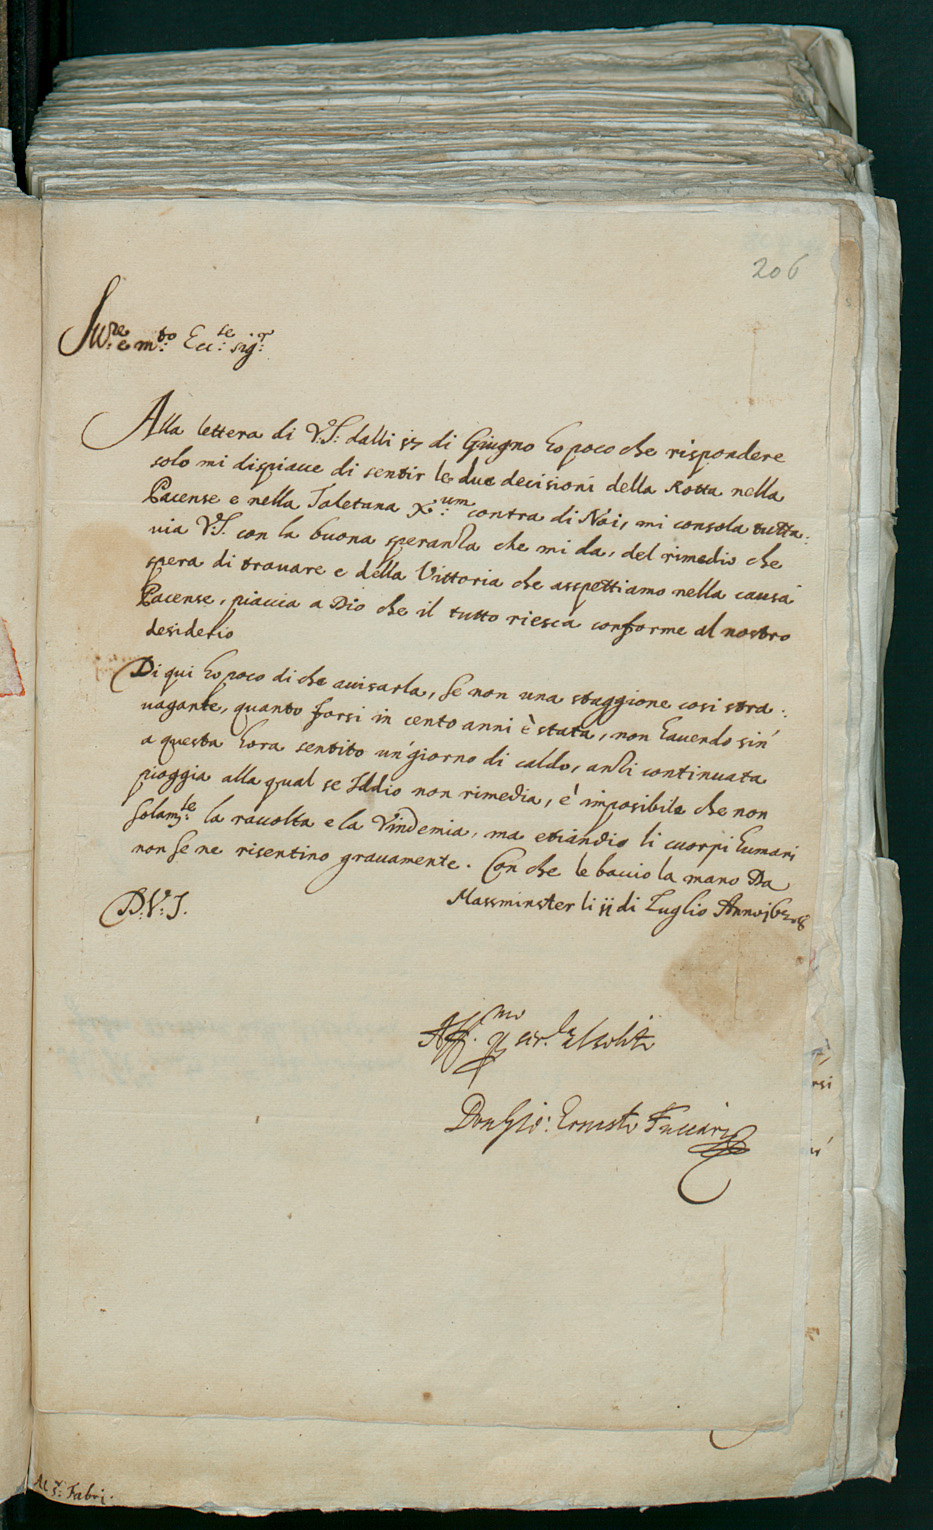 206
Ill.re e m.to Ecc.te sig.r
Alla lettera di V.S: dalli 17 di Giugno ho poco che rispondere
solo mi dispiace di sentir le due decisioni della Rotta nella
Pacense e nella Toletana X.um contra di Noi, mi consola tutta:
uia V.S. con la buona speranza che mi da, del rimedio che
spera di trouare e della Vittoria che asspettiamo nella causa
Pacense, piaccia a Dio che il tutto riesca conforme al nostro
desiderio
Di qui ho poco di che auisarla, se non una staggione cosi stra:
uagante, quanto forsi in cento anni è stata, non hauendo sin'
a questa hora sentito un'giorno di caldo, anzi continuata
pioggia alla qual se Iddio non rimedia, è imposibile che non
solam.te la racolta e la Vindemia, ma etiandio li cuorpi humani
non se ne risentino grauamente. Con che le baccio la mano Da
Massminster li ij di Luglio Anno 1628
D: V: S.
Aff.mo
Don Gio: Ernesto Fuccari
Al S.r Fabri.